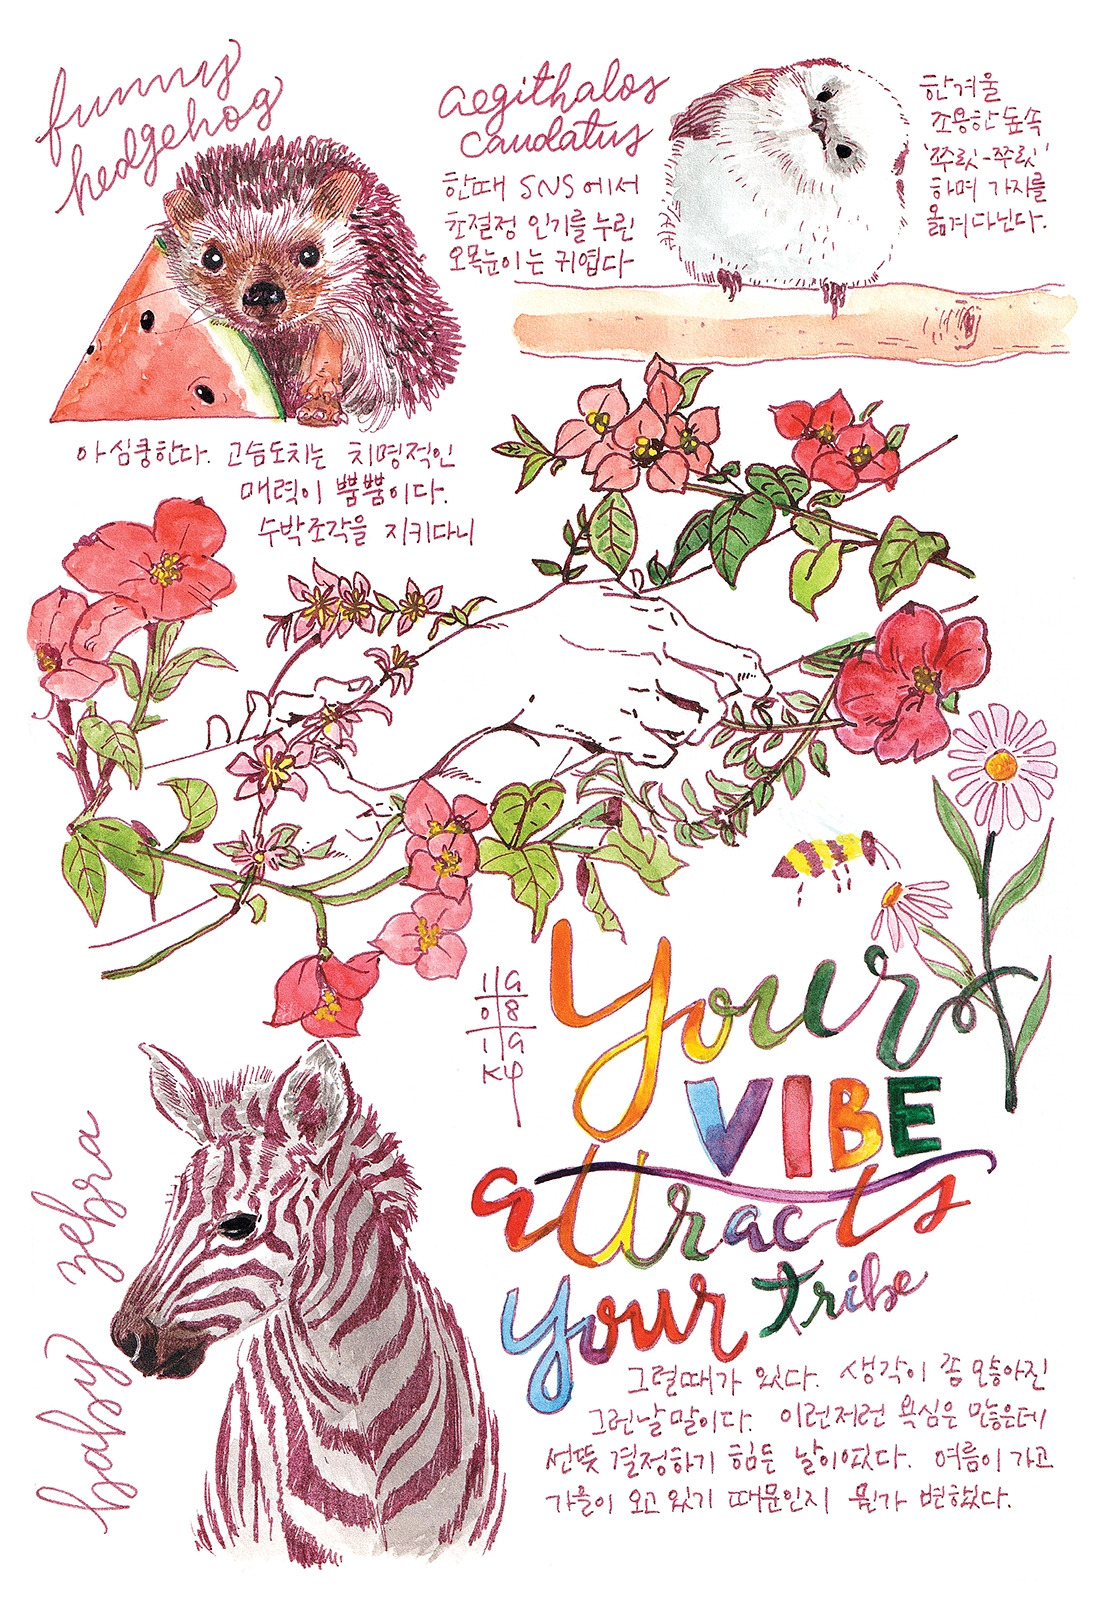 funny
hedgehog
aegithalos
caudatus
한때 SNS에서
초절정 인기를 누린
오목눈이는 귀엽다
한겨울
조용한 숲속
'쭈릿-쭈릿'
하며 가지를
옮겨다닌다.
아 심쿵한다. 고슴도치는 치명적인
매력이 뿜뿜이다.
수박조각을 지키다니
your
VIBE
attracts
your tribe
baby zebra
그럴때가 있다. 생각이 좀 모아진
그런날 말이다. 이런저런 욕심은 많은데
선뜻 결정하기 힘든 날이었다. 여름이 가고
가을이 오고 있기 때문인지 뭔가 변했다.